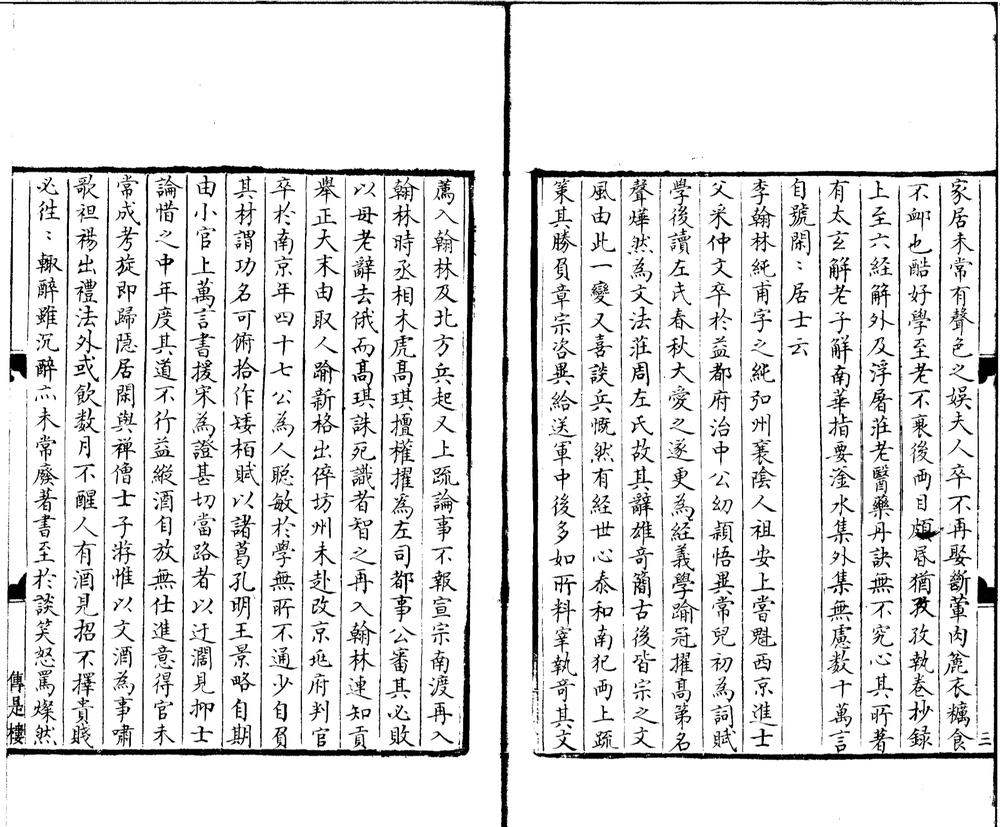 家居未常有聲色之娱夫人卒不再娶斷葷肉麄衣糲食
不卹也酷好學至老不衰後两目頗昏猶孜孜執卷抄録
上至六經解外及浮屠莊老醫藥丹訣無不究心其所著
有太玄解老子解南華指要滏水集外集無慮数十萬言
自號閑〻居士云
李翰林純甫字之純弘州襄陰人祖安上嘗魁西京進士
父采仲文卒於益都府治中公幼穎悟異常兒初為詞賦
學後讀左氏春秋大愛之遂更為經義學踰冠擢髙第名
聲燁然為文法莊周左氏故其辭雄竒簡古後皆宗之文
風由此一變又喜談兵慨然有経世心泰和南犯两上疏
策其勝負章宗咨異給送軍中後多如所料宰執竒其文
三
薦入翰林及北方兵起又上疏論事不報宣宗南渡再入
翰林時丞相术虎髙琪擅權擢為左司都事公審其必敗
以母老辭去俄而髙琪誅死識者智之再入翰林連知貢
舉正大末由取人踰新格出倅坊州未赴改京兆府判官
卒於南京年四十七公為人聡敏於學無所不通少自負
其材謂功名可俯拾作矮栢賦以諸葛孔明王景略自期
由小官上萬言書援宋為證甚切當路者以迂濶見抑士
論惜之中年度其道不行益縱酒自放無仕進意得官未
常成考旋即歸隱居閑與禅僧士子游惟以文酒為事嘯
歌袒裼出禮法外或飲数月不醒人有酒見招不擇貴賤
必徃〻輙醉雖沉醉亦未常廢著書至於談笑怒罵燦然
傳是樓